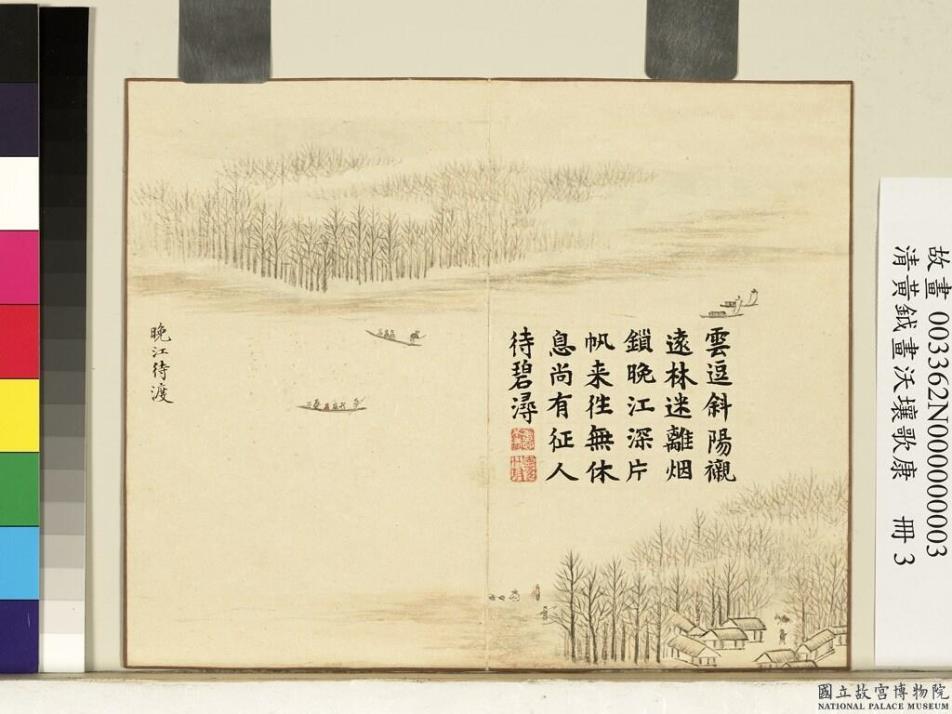 雲逗斜陽襯
遠林迷離烟
鎖晚江深片
帆来往無休
息尚有征人
待碧潯
晚江待渡
故畫 003362N000000003
清黃鉞畫沃壤歌康 冊 3
國立故宮博物院
NATIONAL PALACE MUSEUM